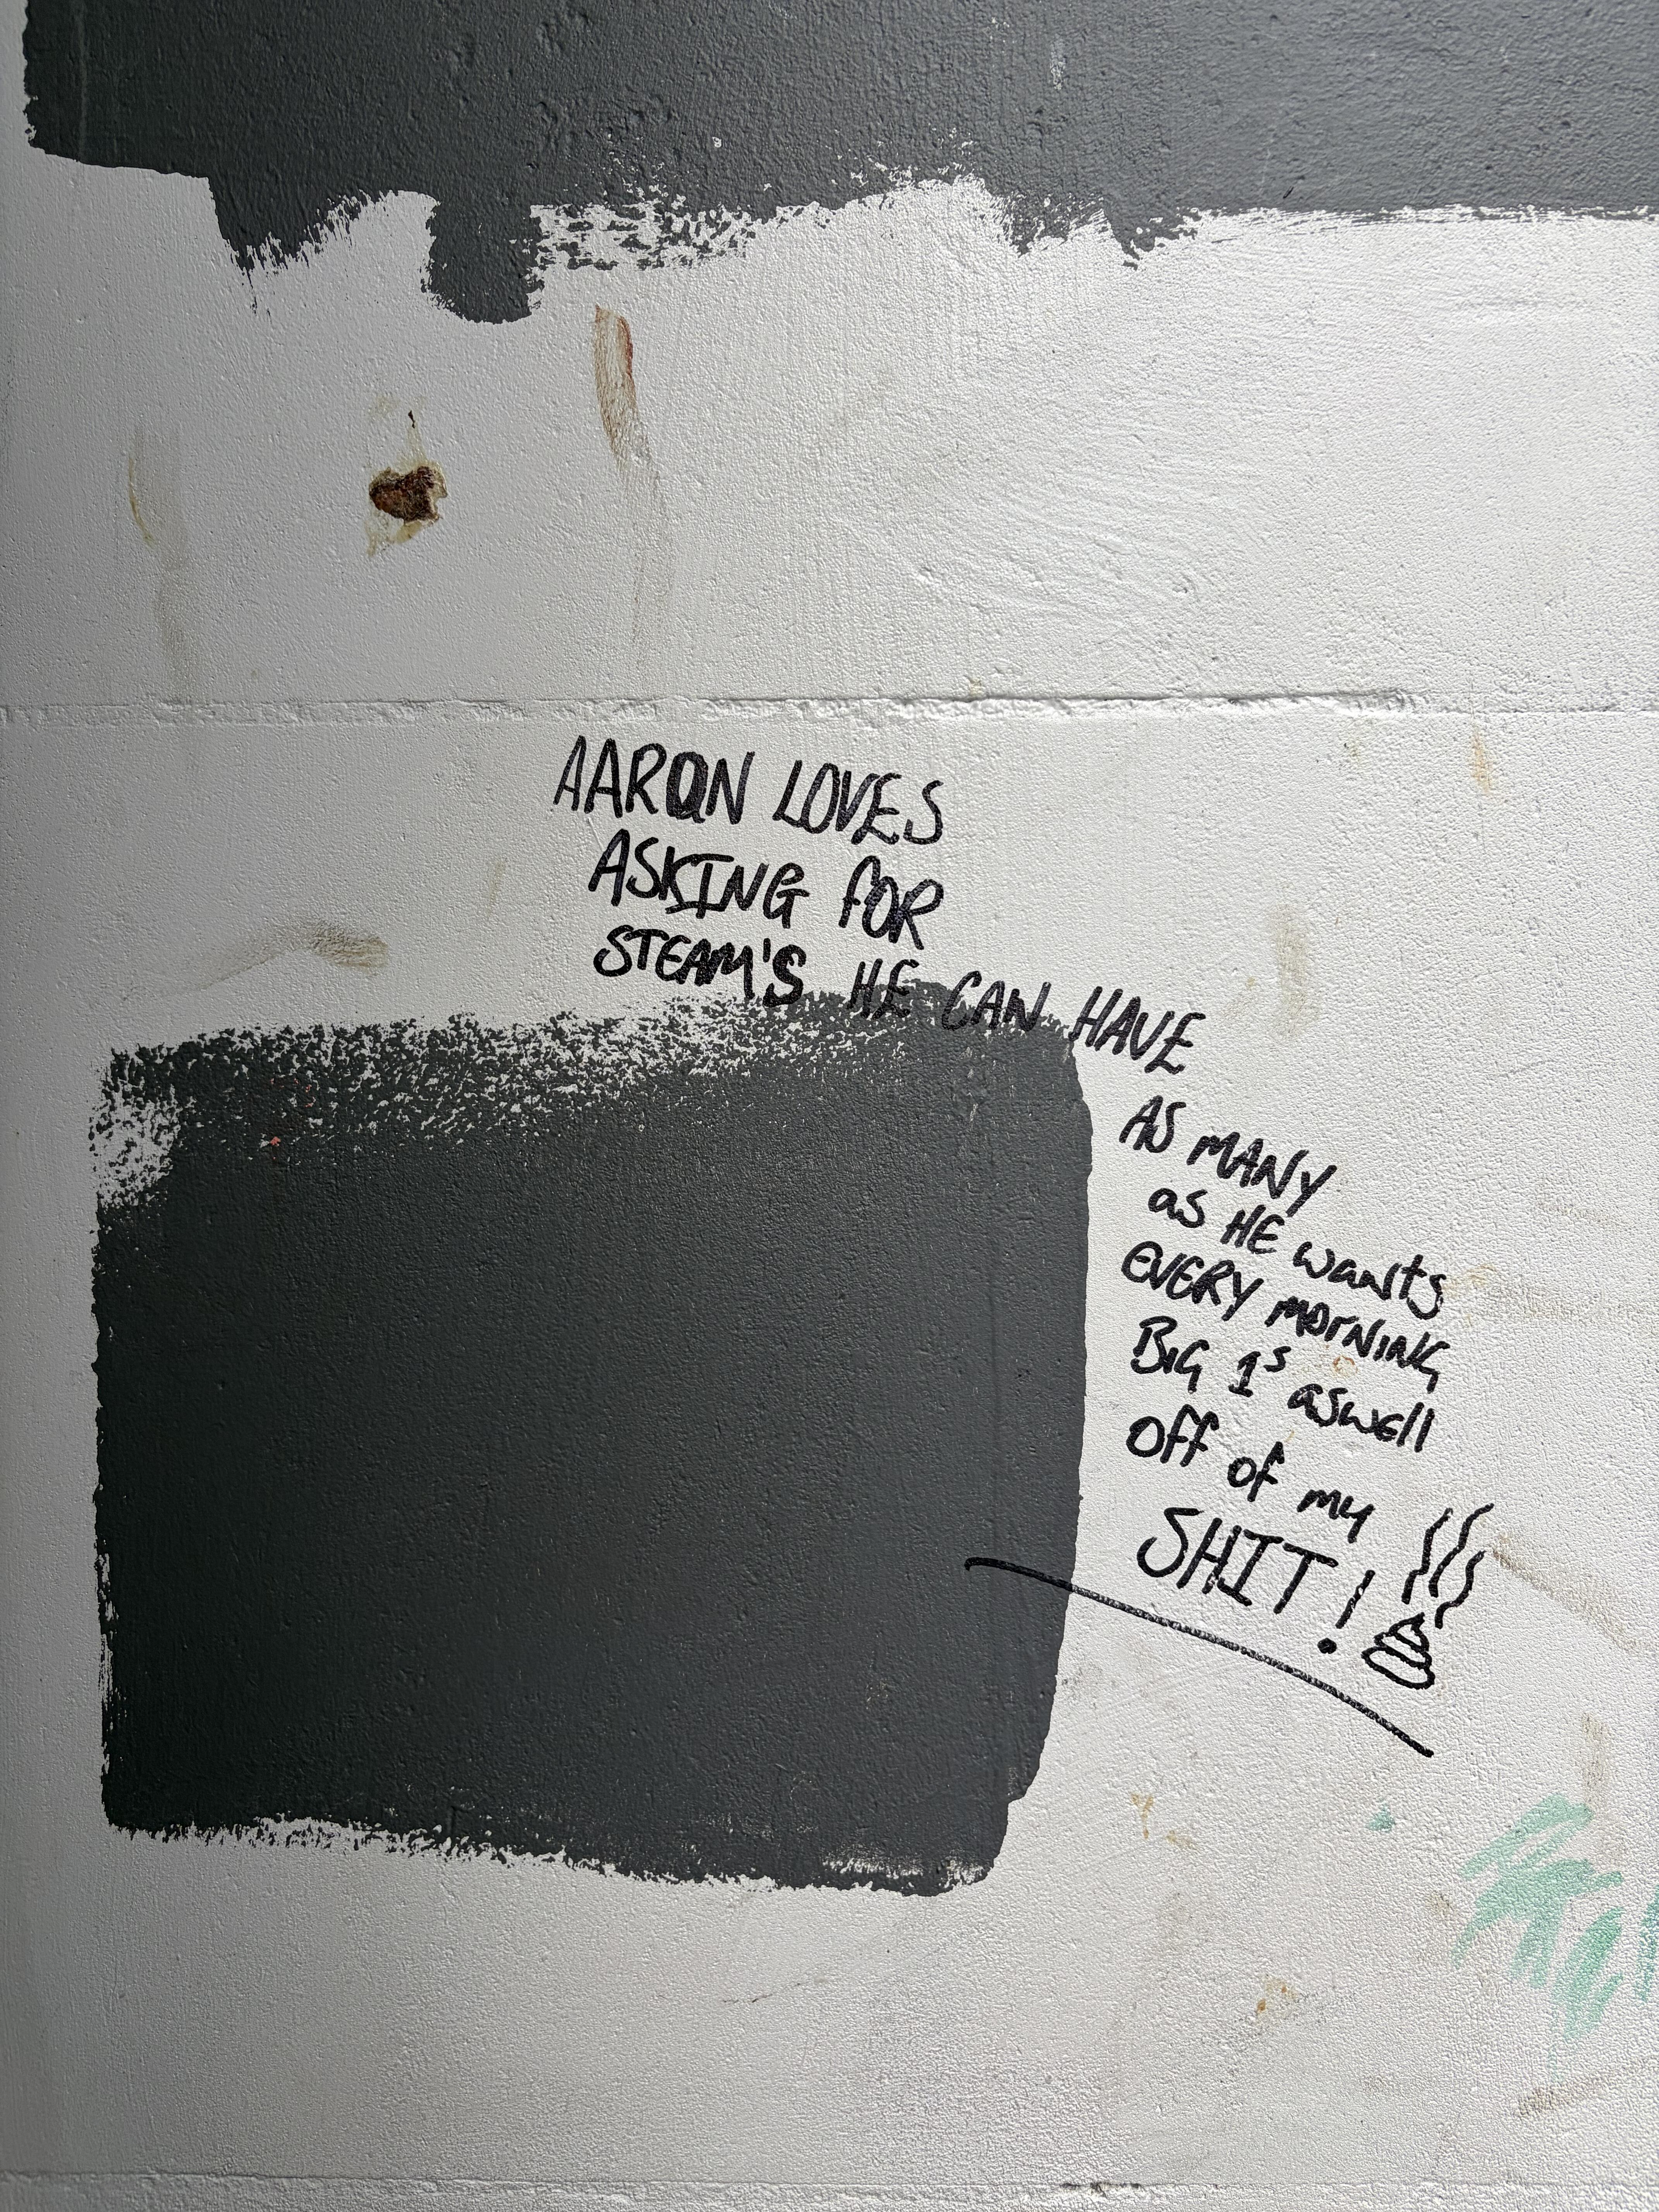 AARON LOVES
ASKING FOR
STEAM'S HE CAN HAVE
AS MANY
as HE wants
EVERY MORNING
BIG 1s aswell
off of my
SHIT!